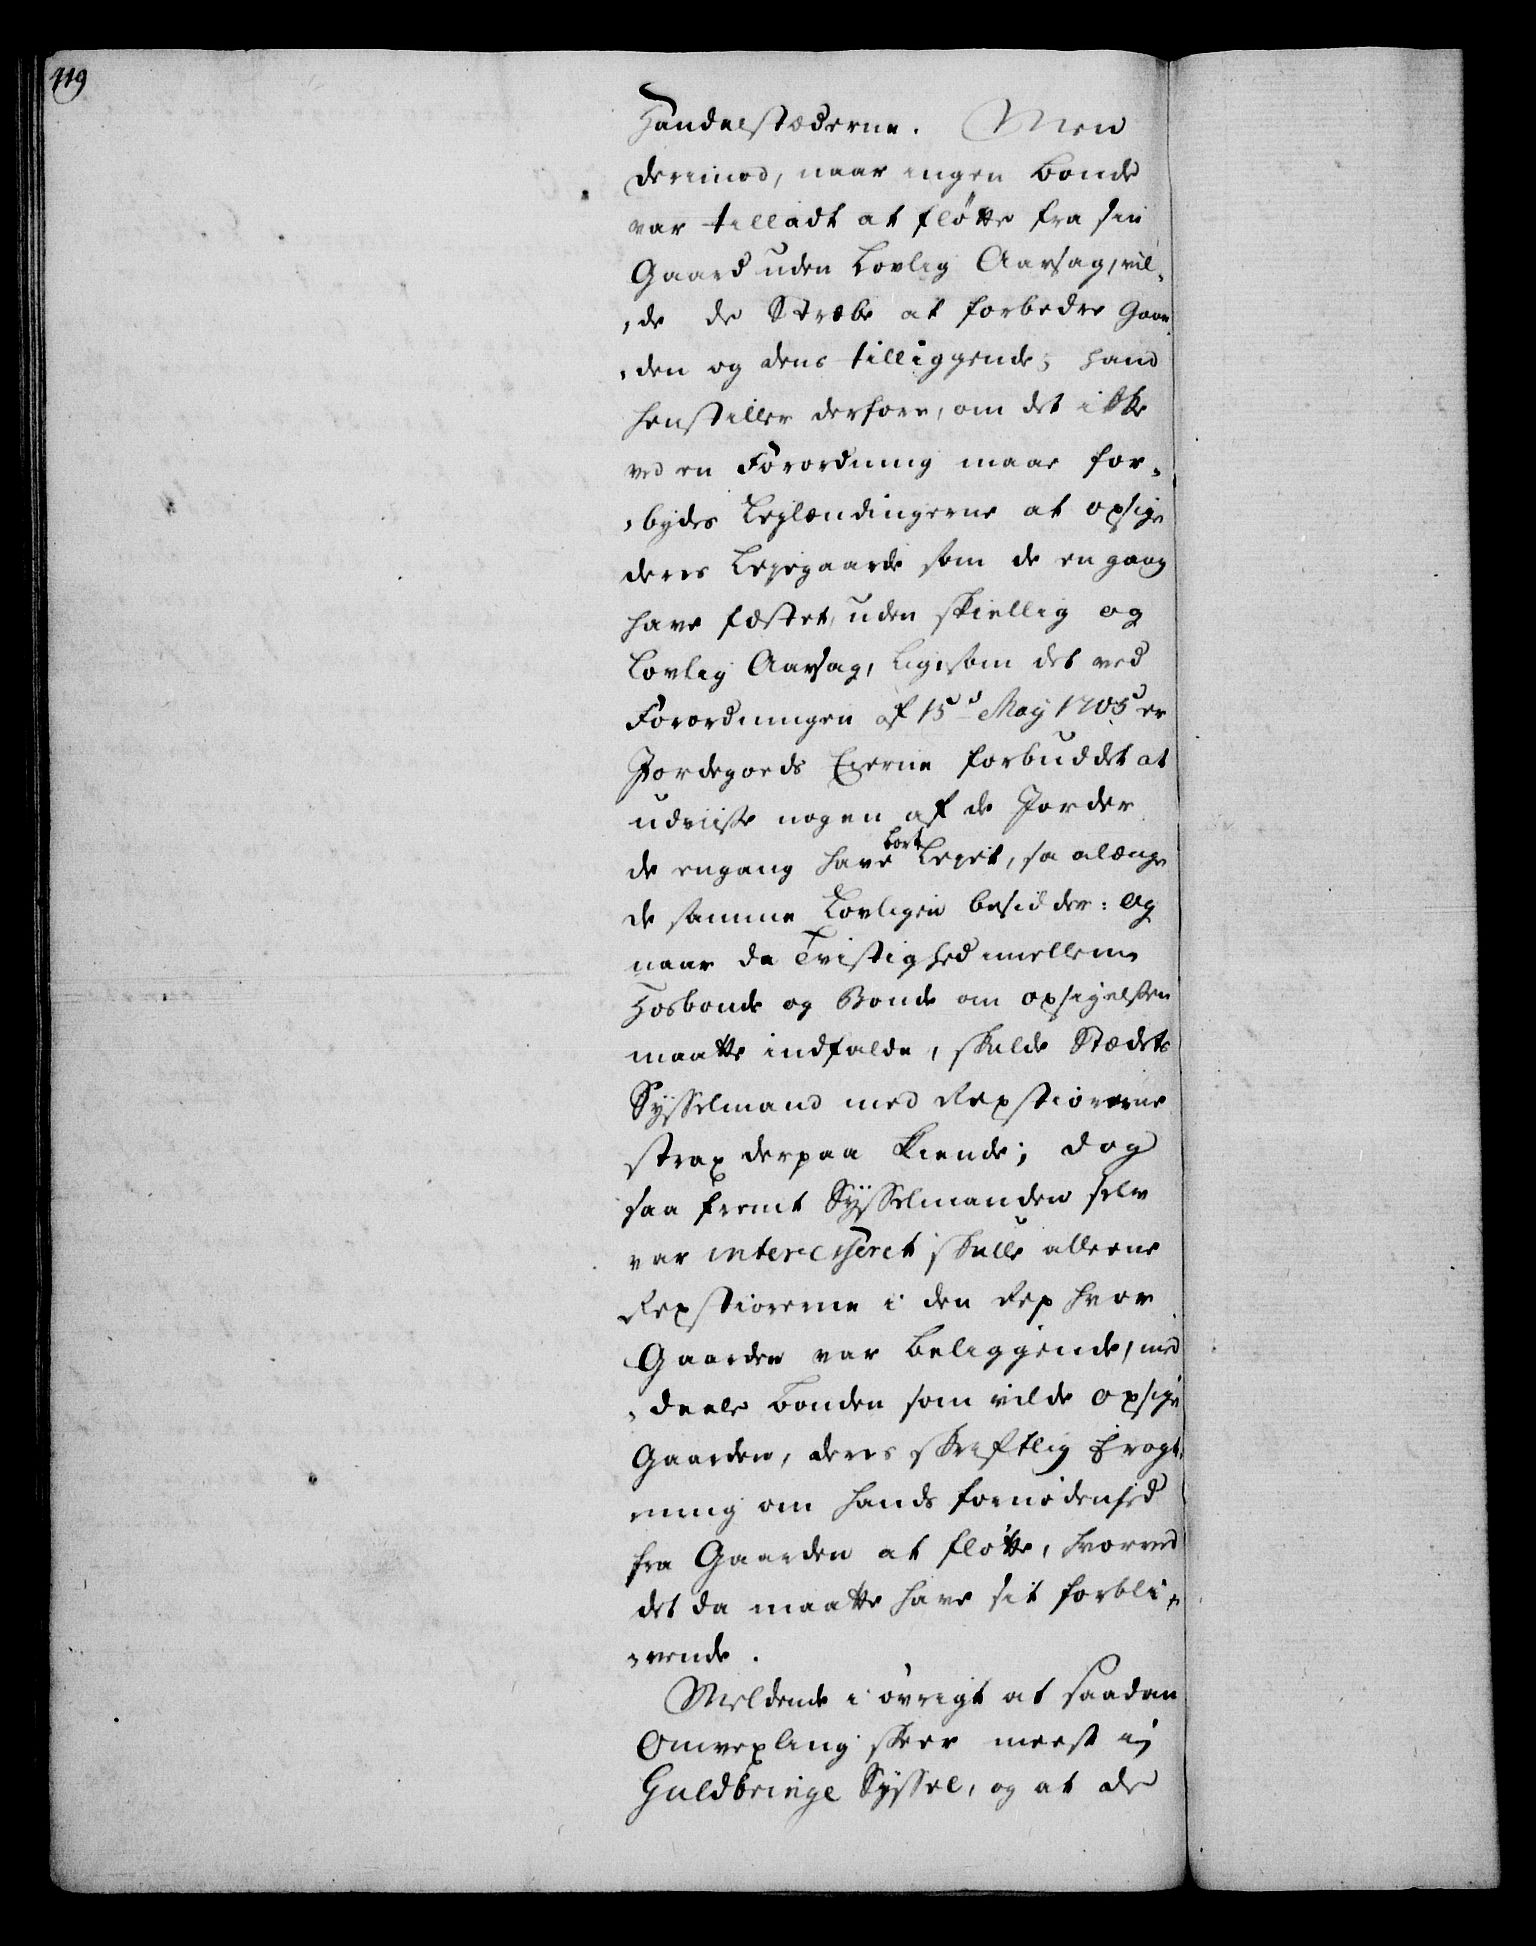 119
Handelstæderne. Men
derimod, naar ingen Bonde
var tilladt at fløtte fra sin
Gaard uden Lovlig Aarsag, vil-
-de de Stræbe at forbedre Gaar-
-den og dens tilliggende; hand
henstiller derfore, om det ikke
ved en Forordning maae for-
-bydes Leylændingerne at opsige
deres Leyegaarde som de engang
have fæstet, uden skiellig og
Lovlig Aarsag, ligesom det ved
Forordningen af 15d May 1705 er
Jordegods Eyerne forbuddet at
udviise nogen af de Jorder
de engang have bort Leyet, saa længe
de samme Lovligen besidder: Og
naar da Tvistighed imellem
Hosbonde og Bonde om opsigelsen
maatte indfalde, skulde Stædets
Sysselmand med Repstiórerne
strax derpaa kiende; dog
saa fremt Sysselmanden selv
var interesseret skulle alleene
Repstiórerne i den Rep hvor
Gaarden var beliggende, med
-deele Bonden som vilde opsige
Gaarden, deres skriftlig Eragt-
ning om hands fornødenhed
fra Gaarden at fløtte, hvorved
det da maatte have sit forbli-
-vende.
Meldende i øvrigt at saadan
Omvexling skeer meest i
Guldbringe Syssel, og at de